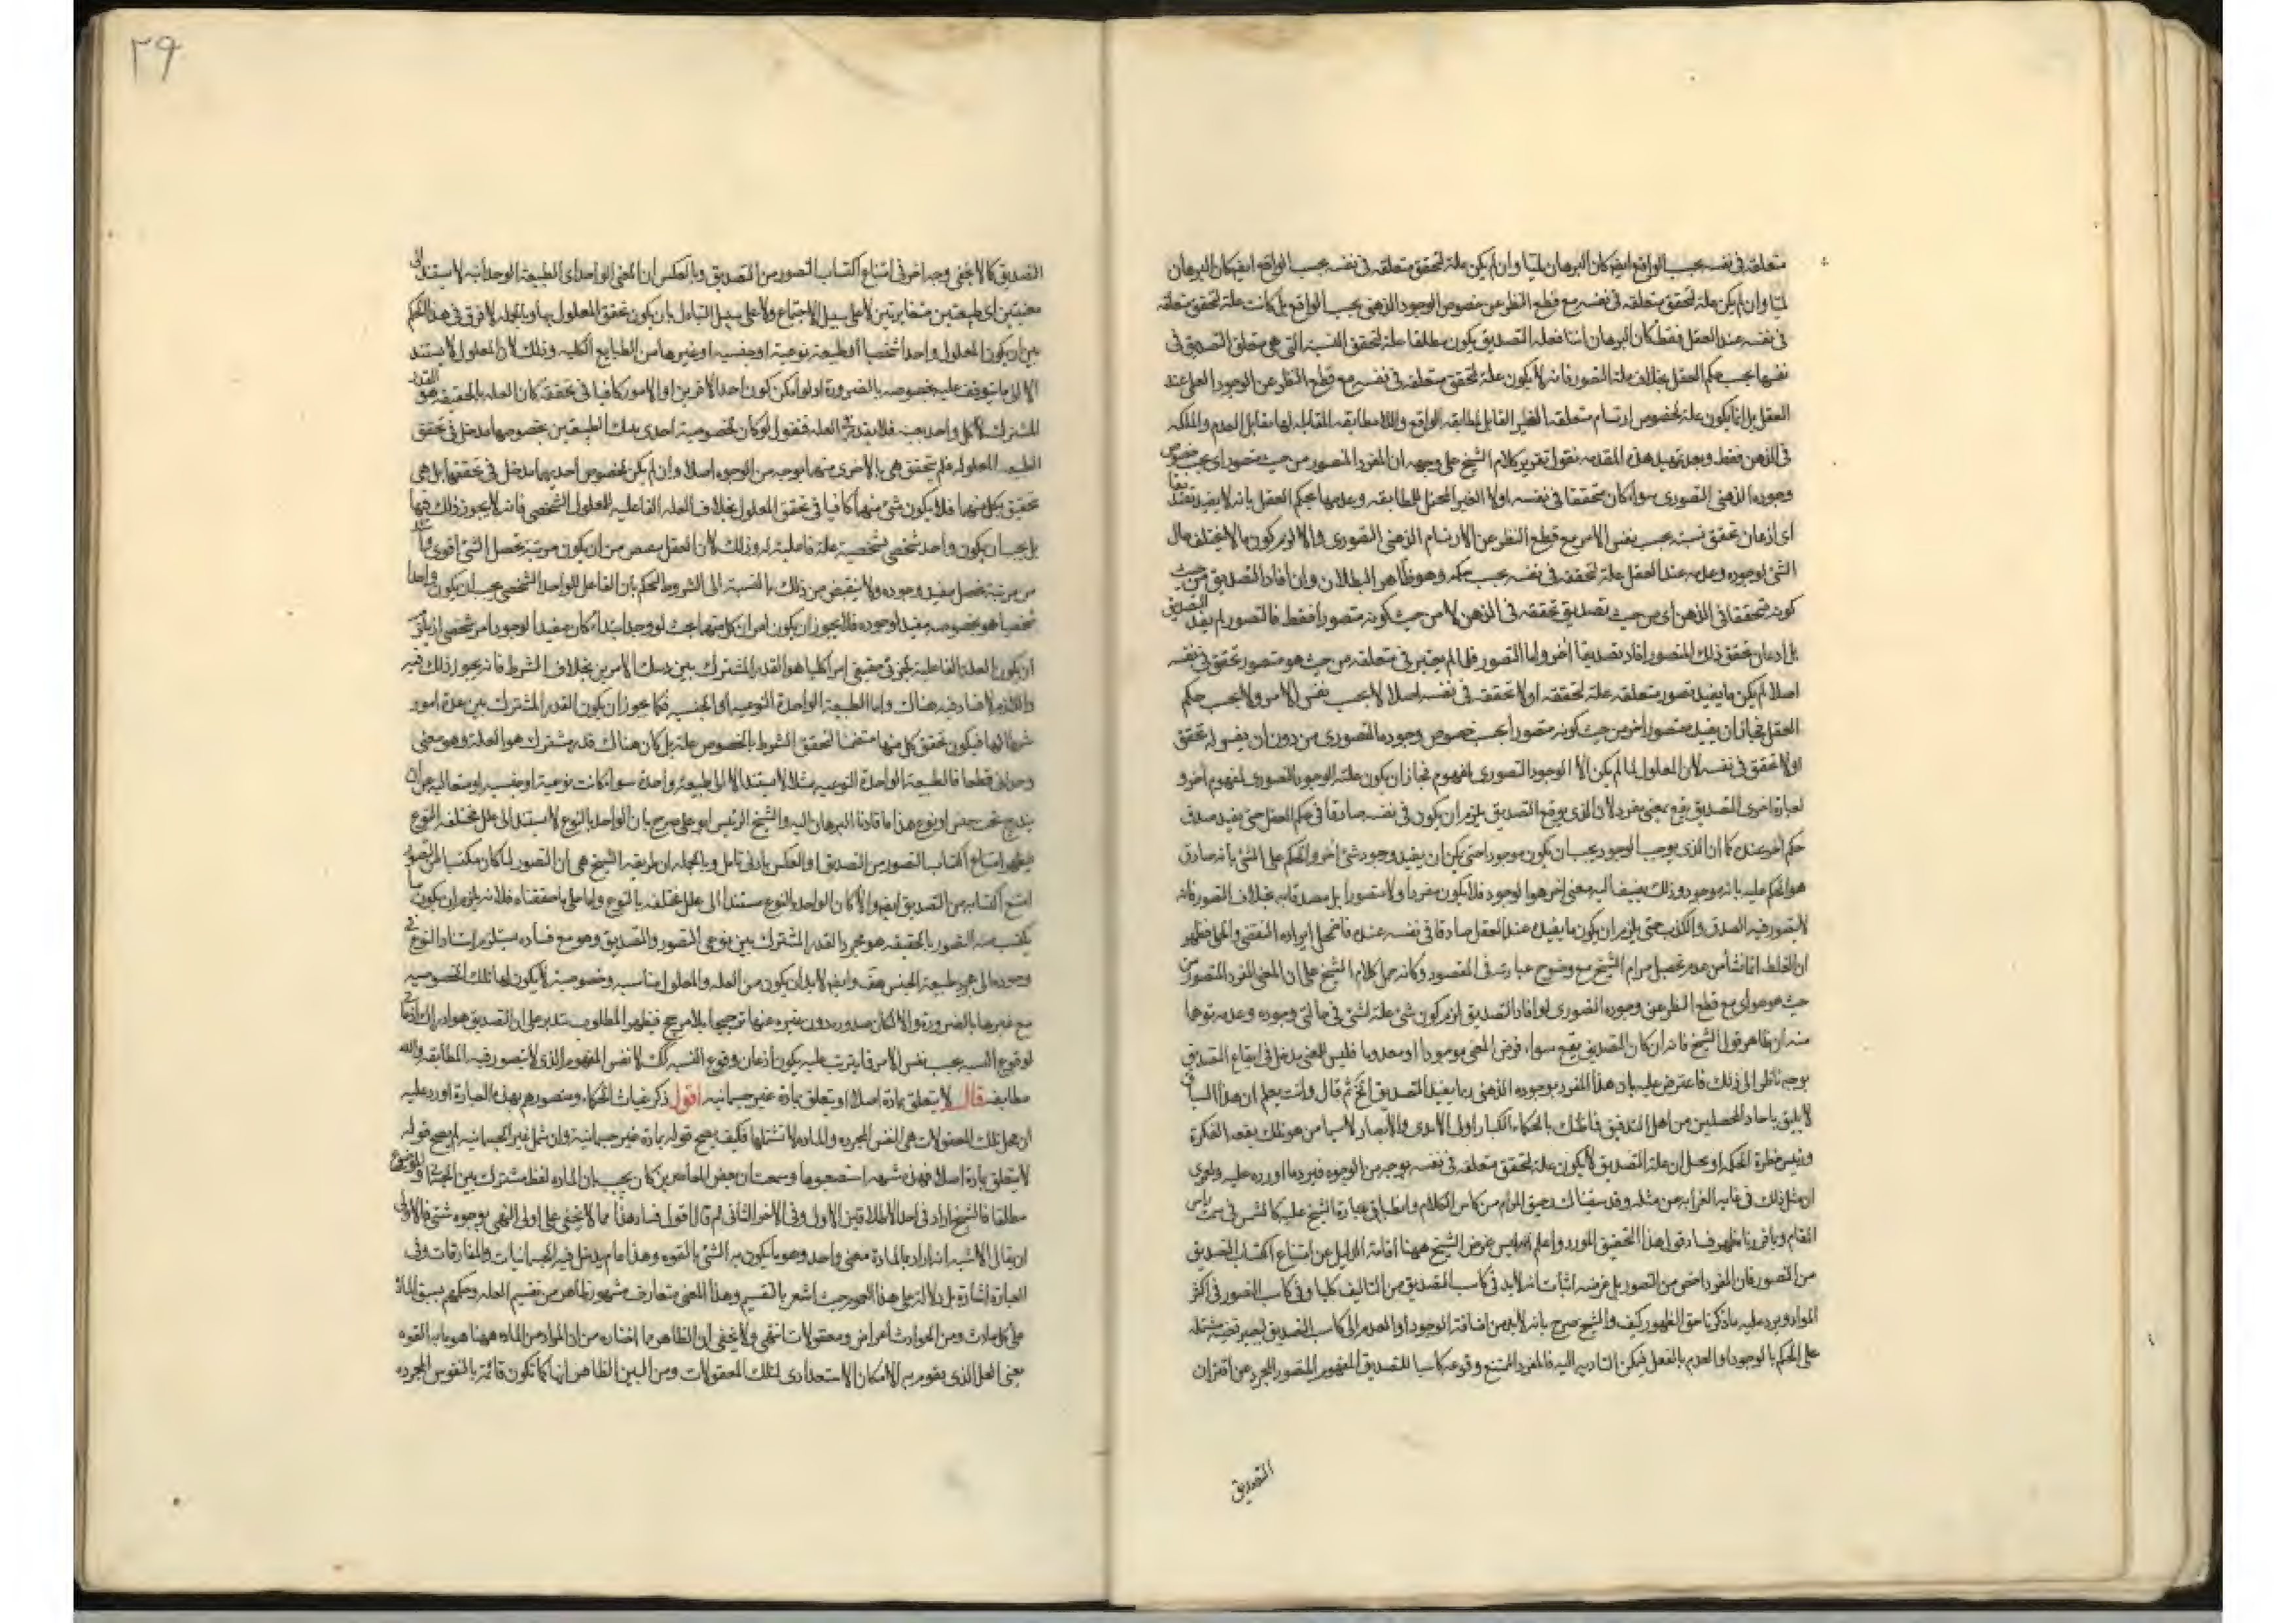 متعلقه فى نفسه بحسب الواقع ايضا كان البرهان لميا وان لم يكن علة لتحقق متعلقه فى نفسه بحسب الواقع ايضا كان البرهان
لميا وان لم يكن علة لتحقق متعلقه فى نفسه مع قطع النظر عن خصوص الوجود الذهنى بحسب الواقع بل كانت علة لتحقق متعلقه
فى نفسه عند العقل فقط كان البرهان انيا فعلة التصديق يكون مطلقا علة لتحقق النسبة التى هى متعلق التصديق فى
نفسها بحسب حكم العقل بخلاف علة التصور فانه لا يكون علة لتحقق متعلقه فى نفسه مع قطع النظر عن الوجود العلى عند
العقل بل انما يكون علة لخصوص ارتسام متعلقه الغير القابل لمطابقه الواقع واللا مطابقه المقابلة لها مقابل العدم والملكه
فى الذهن فقط وبعد تمهيد هذه المقدمه نقول تقرير كلام الشيخ على وجهه ان المفرد المتصور من حيث متصور اى بحسب خصوص
وجوده الذهنى التصورى سواء كان متحققا فى نفسه اولا الغير المحتمل للمطابقه وعدمها بحكم العقل بانه لا يفيد تصديقا
اى اذعان تحقق نسبة بحسب نفس الامر مع قطع النظر عن الارتسام الذهنى التصورى والا لزم كون ما لا يختلف حال
الشئ لوجوده وعدمه عند العقل علة لتحققه فى نفسه بحسب حكمه وهو ظاهر البطلان وان افاد التصديق من حيث
كونه متحققا فى الذهن اى من حيث تصديق تحققه فى الذهن لا من حيث كونه متصورا فقط فالتصور لم يفد التصديق
بل اذعان تحقق ذلك المتصور افاد تصديقا اخر واما التصور فلما لم يعتبر فى متعلقه من حيث هو متصور تحقق فى نفسه
اصلا لم يكن ما يفيد تصور متعلقه علة لتحققه او لا تحققه فى نفسه اصلا لا بحسب نفس الامر ولا بحسب حكم
العقل فجاز ان يفيد متصور اخر من حيث كونه متصورا بحسب خصوص وجوده التصورى من دون ان يفيد له تحقق
او لا تحقق فى نفسه لان المعلول لما لم يكن الا الوجود التصورى لمفهوم فجاز ان يكون علته الوجود التصورى لمفهوم اخر و
لعبارة اخرى التصديق يقع بمعنى مفرد لان الذى يوقع التصديق يلزم ان يكون فى نفسه صادقا فى حكم العقل حتى يفيد صدق
حكم اخر عنده كما ان الذى يوجب الوجود يجب ان يكون موجودا حتى يمكن ان يفيد وجود شئ اخر والحكم على الشئ بانه صادق
هو الحكم عليه بانه موجود وذلك يضيف اليه معنى اخر هو الوجود فلا يكون مفردا ولا متصورا بل مصدقا به بخلاف التصور فانه
لا يتصور فيه الصدق والكذب حتى يلزم ان يكون ما يفيده عند العقل صادقا فى نفسه عنده فاضمحل ايراده النقضى والحلى فظهر
ان الغلط انما نشأ من عدم تحصيل مرام الشيخ مع وضوح عبارته فى المقصود وكانه حمل كلام الشيخ على ان المعنى المفرد المتصور من
حيث هو هو اى مع قطع النظر عن وجوده التصورى لو افاد التصديق لزم كون شئ علة لشئ فى حالتى وجوده وعدمه توهما
منه ان ظاهر قول الشيخ فانه ان كان التصديق يقع سواء فرض المعنى موجودا او معدوما فليس للمعنى مدخل فى ايقاع التصديق
بوجه ناظر الى ذلك فاعترض عليه بان هذا المفرد بوجوده الذهنى ربما يفيد التصديق الخ ثم قال وانت تعلم ان هذا السياق
لا يليق باحاد المحصلين من اهل التدقيق فما ظنك بالحكماء الكبار اولى الايدى والابصار لا سيما من هو ملك بقعه الفكرة
ورئيس خطرة الحكمه او يحمل ان علة التصديق لا يكون علة لتحقق متعلقه فى نفسه بوجه من الوجوه فيرد ما اورده عليه ولعمرى
ان مثل ذلك فى غاية الغرابه من مثله وقد سقيناك رحيق المرام من كاس الكلام وانطباق عبارة الشيخ عليه كالشمس فى سمت راس
المقام وبما قررنا ظهر فساد قول هذا التحقيق المورد واعلم انه ليس غرض الشيخ ههنا اقامة الدليل عن امتناع اكتساب التصديق
من التصور فان المفرد اخص من التصور بل غرضه اثبات انه لا بد فى كاسب التصديق من التاليف كليا وفى كاسب التصور فى اكثر
المواد ويرد عليه ما ذكرنا حق الظهور كيف والشيخ صرح بانه لا بد من اضافة الوجود او العدم الى كاسب التصديق ليصير قضية مشتمله
على الحكم بالوجود او العدم بالفعل فيمكن التادى به اليه فالمفرد الممتنع وقوعه كاسبا للتصديق المفهوم المتصور المجرد عن اقتران
التصديق
٢٩
التصديق كما لا يخفى وجه اخر فى امتناع اكتساب التصور من التصديق وبالعكس ان المعنى الواحد اى الطبيعة الواحدة لا يستند الى
معنيين اى طبيعتين متغايرتين لا على سبيل الاجتماع ولا على سبيل التبادل بان يكون تحقق المعلول بها وبالبدل لا فرق فى هذا الحكم
بين ان يكون المعلول واحدا شخصيا او طبيعة نوعية او جنسية او غيرها من الطبايع الكليه وذلك لان المعلول لا يستند
الا الى ما يتوقف عليه بخصوصه بالضرورة اذ لو امكن كون احد الامرين او الامور كافيا فى تحققه كان العلة بالحقيقه هو القدر
المشترك لا كل واحد بعينه فلا يتعدد العله فنقول لو كان لخصوصية احدى الطبيعتين بخصوصها مدخل فى تحقق
الطبيعه المعلوله فلم يتحقق هى بالاخرى منهما بوجه من الوجوه اصلا وان لم يكن لخصوص احديهما مدخل فى تحققها بل هى
تحقق بكل منهما فلا يكون شئ منهما كافيا فى تحقق المعلول بخلاف العله الفاعليه للمعلول الشخصى فانه لا يجوز ذلك فيها
بل يجب ان يكون واحد شخصى بشخصية علة فاعلية له وذلك لان العقل ينقبض من ان يكون مرتبة تحصل الشئ اقوى
من مرتبة تحصل مفيد وجوده ولا ينقبض من ذلك بالنسبة الى الشروط الحكم بان الفاعل للواحد الشخصى يجب ان يكون واحدا
شخصيا هو بخصوصه مفيد لوجوده فلا يجوز ان يكون امران كل منهما بحيث لو وجد ابتداء كان مفيدا لوجود امر شخصى اذ يلزم
ان يكون العلة الفاعلية لجزئى حقيقى امرا كليا هو القدر المشترك بين الامرين بخلاف الشرط فانه يجوز ذلك فيه
واللازم لا فساد فيه هناك واما الطبيعة الواحدة النوعيه او الجنسيه فكما يجوز ان يكون القدر المشترك بين عدة امور
شرطا لها فيكون تحقق كل منها متضمنا لتحقق الشرط بالخصوص علة بل كان هناك قدر مشترك هو العلة وهو معنى
قطعا فالطبيعة الواحدة النوعيه مثلا لا يستند الا الى طبيعة واحدة سواء كانت نوعية او جنسيه
يندرج تحت جنس او نوع هذا ما قادنا البرهان اليه والشيخ الرئيس ابو على صرح بان الواحد بالنوع لا يستند الى علل مختلفه النوع
فيظهر امتناع اكتساب التصور من التصديق او العكس بادنى تامل وبالجمله ان طريقه الشيخ هى ان التصور لما كان مكتسبا من التصور
امتنع اكتسابه من التصديق ايضا والا لكان الواحد بالنوع مستندا الى علل مختلفه بالنوع واما على ما حققناه فلانه يلزم ان يكون ما
يكتسب منه التصور بالحقيقه هو مجرد القدر المشترك بين نوعى التصور والتصديق وهو مع فساده يستلزم استناد النوع فى
وجوده الى مجرد طبيعة الجنس هف وايضا لا بد ان يكون بين العله والمعلول مناسبه وخصوصية لا يكون لها تلك الخصوصيه
مع غيرها بالضرورة والا لكان صدوره دون غيره عنها ترجيحا بلا مرجح فيظهر المطلوب بتدبر على ان التصديق هو ادراك
لوقوع النسبه بحسب نفس الامر فما يترتب عليه يكون اذعان وقوع النسبه كك لا نفس المفهوم الذى لا يتصور فيه المطابقه واللا
مطابقه قال لا يتعلق بمادة اصلا او يتعلق بمادة غير جسمانيه اقول ذكر غياث الحكماء ومنصورهم بهذه العبارة اورد عليه
ان محل تلك المعقولات هى النفس المجرده والماده لا تشتملها فكيف يصح قوله بمادة غير جسمانية وان شمل غير الجسمانيه لم يصح قوله
لا يتعلق بمادة اصلا فهذه شبهه استصعبوها وسمعت ان بعض المعاصرين كان يجيب بان الماده لفظ مشترك بين الجزئى والموضوع
مطلقا فالشيخ اراد فى احد الاطلاقين الاول وفى الاخر الثانى ثم قال اقول فساد هذا مما لا يخفى على اولى النهى بوجوه شتى فالاولى
ان يقال الاشبه انه اراد بالمادة معنى واحد وهو ما يكون به الشئ بالقوه وهذا عام يدخل فيه الجسمانيات والمفارقات وفى
العبارة اشارة بل دلالة على هذا العموم حيث اشعر بالتقسيم وهذا المعنى متعارف مشهور ظاهر من تقسيم العله وحكمهم بسبق المادة
على كل حادث ومن الحوادث اعراض ومعقولات انتهى ولا يخفى ان الظاهر ما اختاره من ان المراد من الماده ههنا هو ما به القوه
بمعنى المحل الذى يقوم به الامكان الاستعدادى لتلك المعقولات ومن البين الظاهر انها كما تكون قائمة بالنفوس المجرده